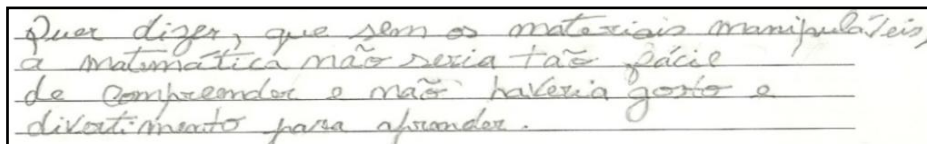 Quer dizer, que sem os materiais manipuláveis,
a matemática não seria tão fácil
de compreender e não haveria gosto e
divertimento para aprender.